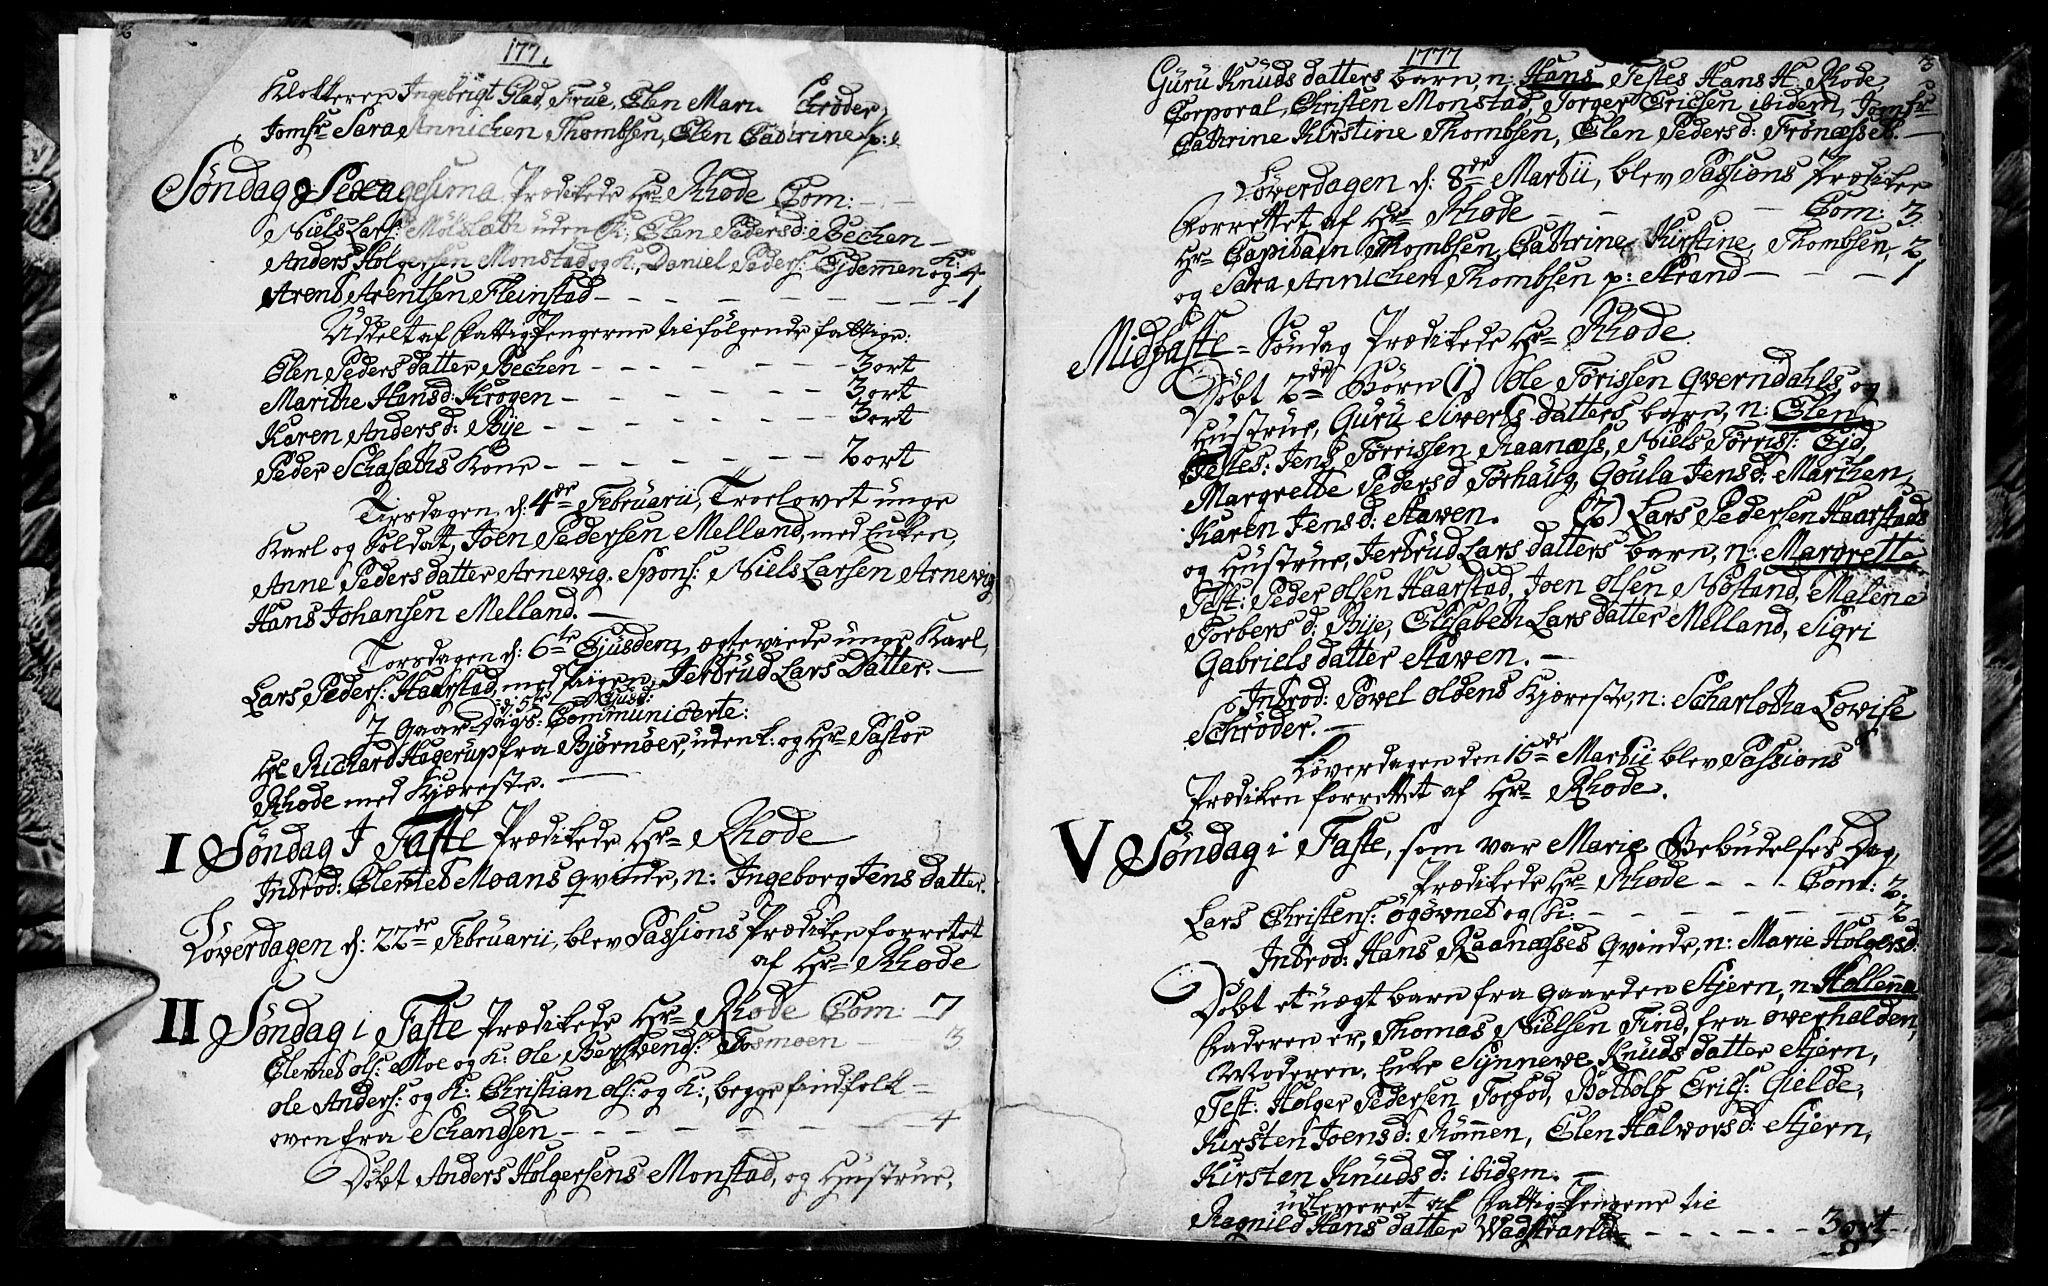 177
Klokkeren Ingebrigt Glad, Frue, Elen Mari Schrøder
Jomfr Sara Annichen Thombsen, Elen Cathrine p:
Søndag Sexagesima Prædikede Hr Rhode Com:
Niels Lars: uden K; Elen Pedersd: Bechen
Anders Holgersen Monstad og K:, Daniel Peders: Eidemmen og K: 4
Arent Arentsen Fleinstad 1
Uddelt af Fattig Pengerne til følgende fattige:
Elen Peders datter Bechen 3 ort
Marithe Hansd: Krogen 3 ort
Karen Andersd: Bije 3 ort
Peder Schasæths Kone 2 ort
Tirsdagen, d: 4de Februarii, Troelovet unge
Karl og Soldat, Joen Pedersen Melland, med Enken,
Anne Peders datter Arnevig. Spons: Niels Larsen Arnevig
Hans Johansen Melland.
Torsdagen d: 6te Ejusdem, ægteviede unge Karl,
Lars Peders: Haarstad, med Pigen, Jertrud Lars Datter.
d: 5te Ejusd:
7 Gaar Dags: Communicerte:
Hr Richard Hagerup fra Bjørnøer, uden k: og Hr Pastor
Rhode med Kjæreste.
I Søndag J Faste Prædikede Hr Rhode
Introd: Clemet Moans Qvinde, n: Ingeborg Jens datter.
Løverdagen d: 22de Februarii, blev Passions Prædiken forrettet
af Hr Rhode
II Søndag i Faste Prædikede Hr Rhode Com: 7
Clemet Ols: Moe og K: Ole Bertvends: Fosmoen 3
Ole Anders: og K: Christian Ols: og K:, begge findfolk
oven fra Schandsen 4
Døbt Anders Holgersens Monstad, og Hustrue,
1777
3
Guru Knuds datters barn, n: Hans Testes Hans H. Rhode,
Corporal, Christen Monstad, Jørger Ericsen ibidem, Jomfr
Cathrine Kirstine Thombsen, Elen Pedersd: Frønæsset.
Løverdagen d: 8de Martii, blev Passions Prædiken
forrettet af Hr Rhode Com: 3
Hr Capitain Thombsen, Cathrine Kirstine Thombsen, 2
og Sara Annichen Thombsen p: Strand 1
Midfaste - Søndag Prædikede Hr Rhode
Døbt 2de Børn (1) Ole Tørissen Qverndahls, og
Hustrue, Guru Siverts datters barn, n: Elen
Testes: Jens Tørrissen Raanæss, Niels Tørris: Eid,
Margrette Pedersd Torhaug, Goula Jensd: Marchen,
Karen Jensd: Staven. (2) Lars Pedersen Haarstads
og Hustrue, Jertrud Lars datters barn, n: Margrette
Test: Peder Olsen Haarstad, Joen Olsen Nøstand, Malene
Torbersd: Bije, Elisabeth Lars datter Melland, Sigri
Gabriels datter Staven.
Introd: Povel Oldens Kjæreste, n: Scharlotha Lovise
Schrøder.
Løverdagen den 15de Martii blev Passions
Prædiken forrettet af Hr Rhode.
V Søndag i Faste, som var Mariæ Bebudelses Dag,
Prædikede Hr Rhode Com: 2
Lars Christens: Øgøvnet og K: 2
Introd: Hans Raanæsses Qvinde, n: Marie Holgersd:
Døbt et uægt barn fra gaarden Stjern, n: Hollena
Faderen er, Thomas Nielsen Find, fra Overhalden,
Moderen, Enke Synneve Knuds datter Stjern,
Test: Holger Pedersen Torfod, Bottolf Erics: Gielde,
Kirsten Joensd: Rømmen, Elen Halvorsd: Stjern,
Kirsten Knudsd: ibidem.
udleveret af Fattig Pengene til
Ragnild Hans datter Wadstrand 3 ort